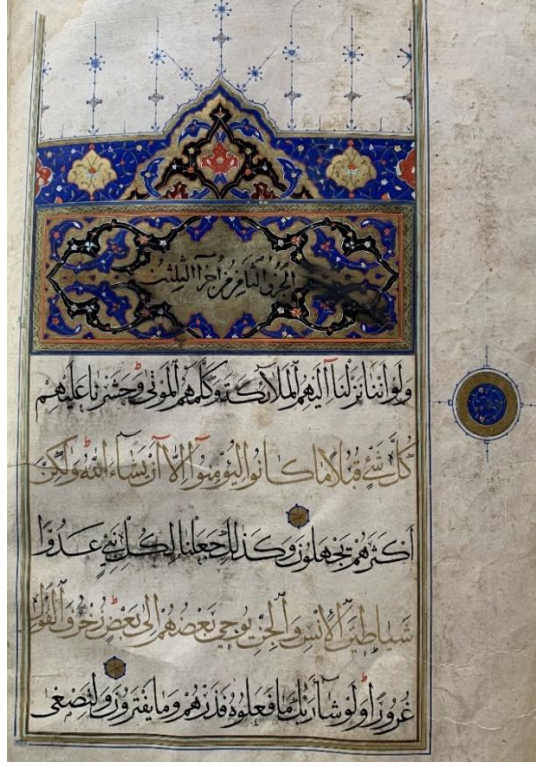 الجزو الثامن من اجزا الثلثين
ولو اننا نزلنا اليهم الملائكة وكلمهم الموتى وحشرنا عليهم
كل شىء قبلا ما كانوا ليؤمنوا الا ان يشاء الله ولكن
اكثرهم يجهلون وكذلك جعلنا لكل نبي عدوا
شياطين الانس والجن يوحي بعضهم الى بعض زخرف القول
غرورا ولو شاء ربك ما فعلوه فذرهم وما يفترون ولتصغى